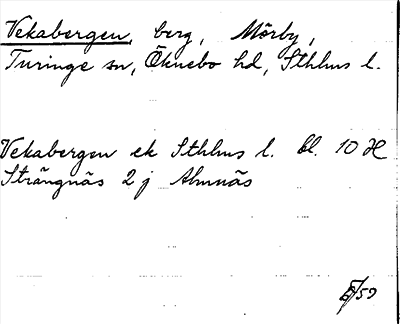 Vekabergen, berg, Mörby,
Turinge sn, Öknebo hd, Sthlms l.
Vekabergen ek Sthlms l. bl. 10 H
Strängnäs 2 j Almnäs
/59